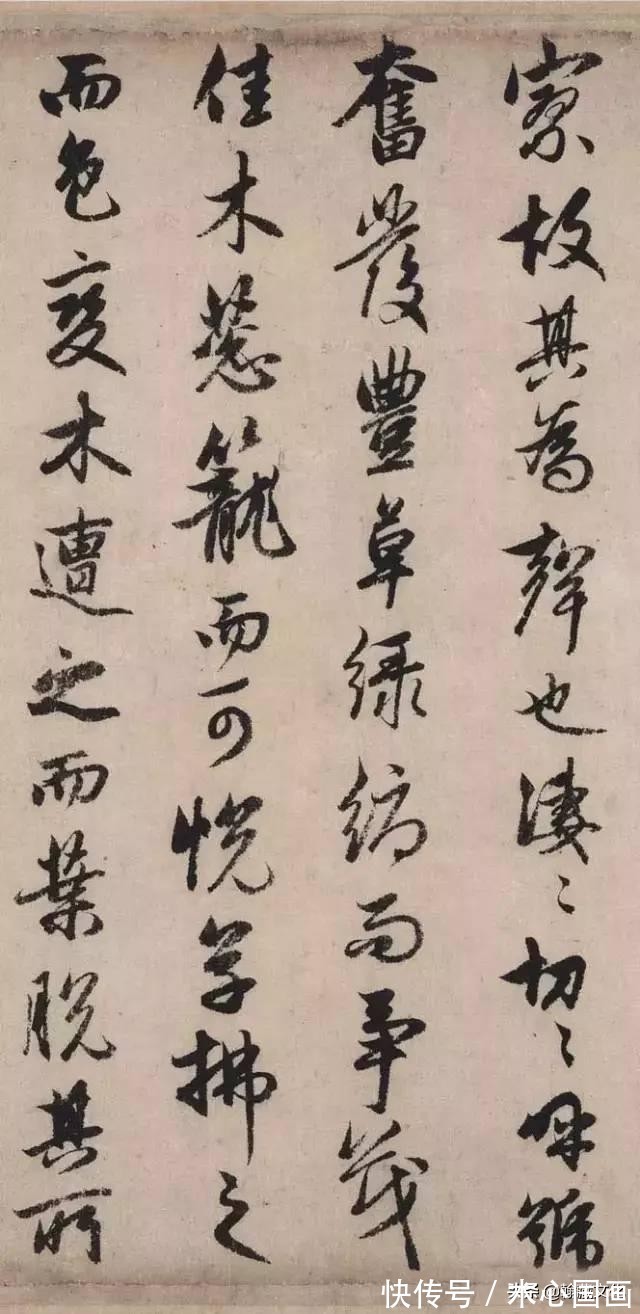 寮故其為聲也淒〻切〻呼號
奮發豐草綠縟而爭茂
佳木葱籠而可悅草拂之
而色變木遭之而葉脫其所
快传号 /